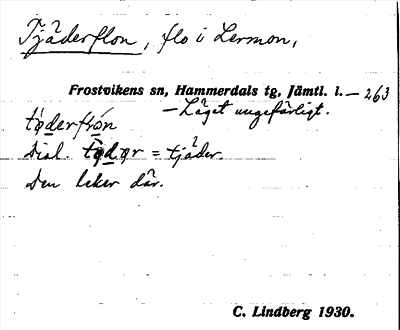 Tjäderflon, flo i Lermon,
Frostvikens sn, Hammerdals tg, Jämtl. l. — 263
— Läget ungefärligt.
tǫderfrón
Dial. tǫdęr = tjäder.
Den leker där.
C. Lindberg 1930.